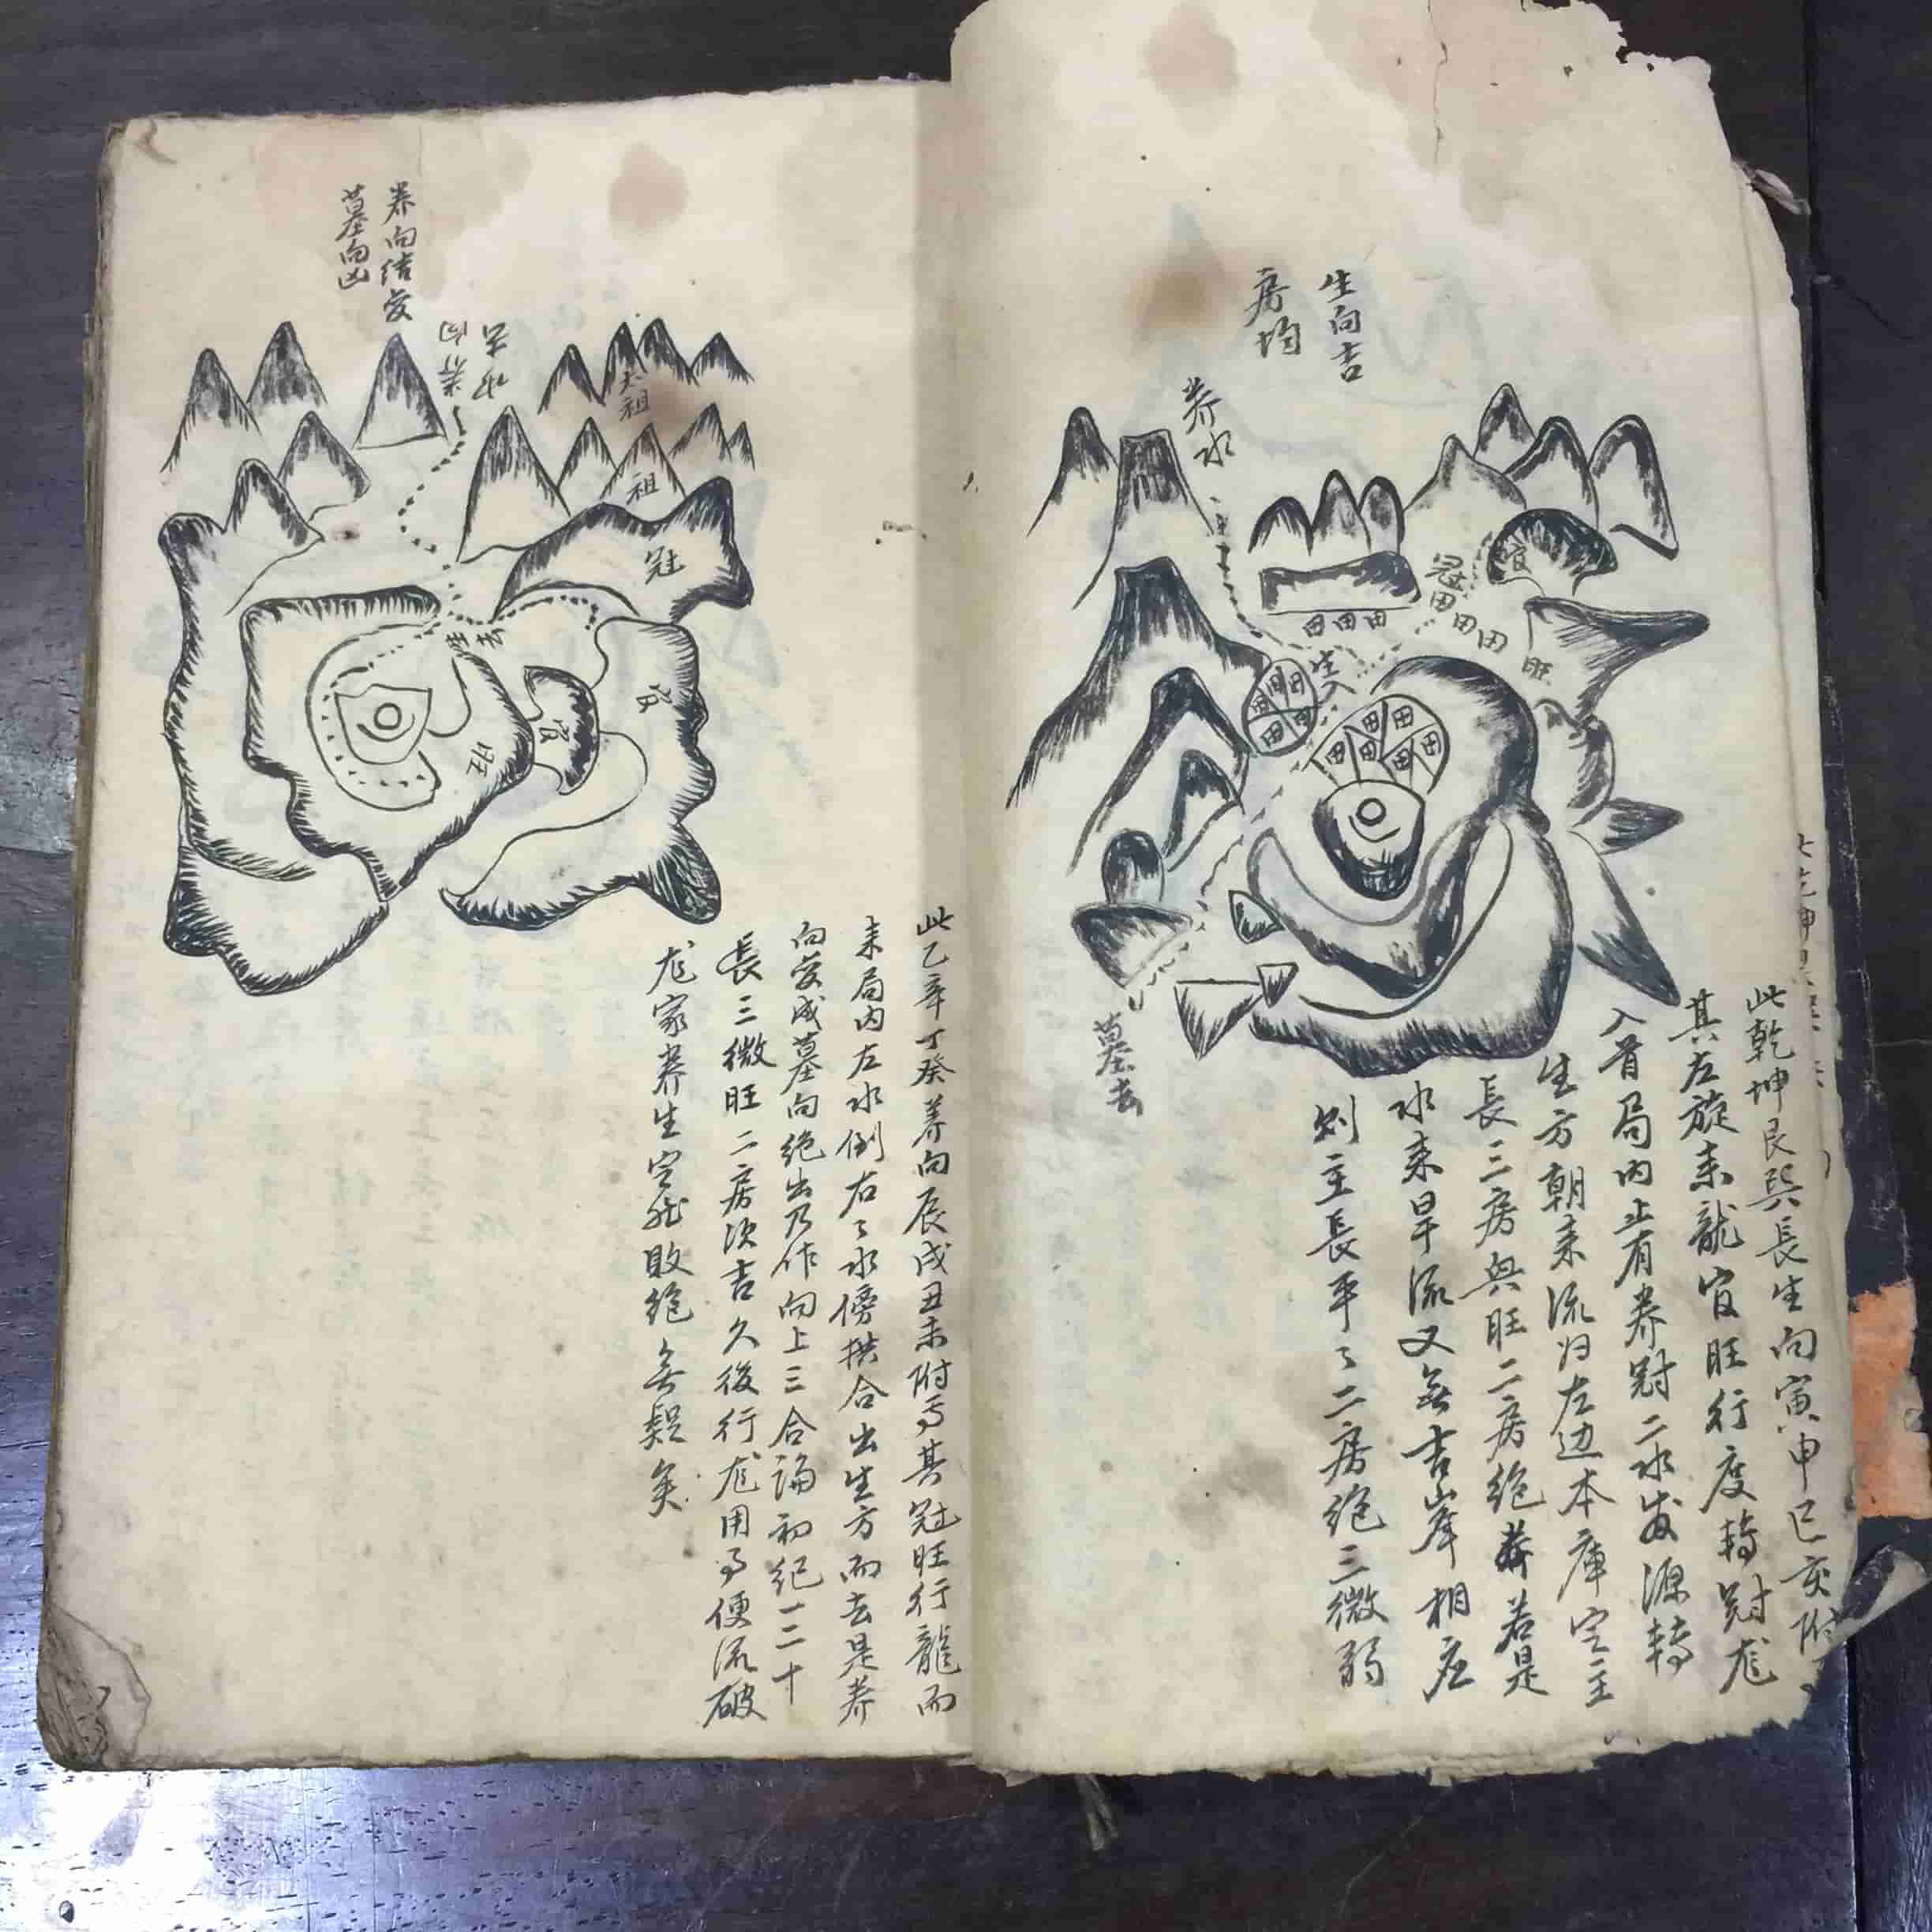 生向吉
房均
养水
冠
官
田田田
田田田
旺
生入
墓去
此乾坤艮巽長生向寅申巳亥附
其左旋来龍官旺行度轉冠尨
入首局内止有养冠二水发源轉
生方朝来流归左边本庫定主
長三房兴旺二房绝嗣若是
水来旱流又無吉峯相应
则主長平之二房绝三微弱
养向结变
墓向凶
太祖
祖
冠
官
官
旺
生去
此乙辛丁癸养向辰戌丑未附焉其冠旺行龍而
来局内左水倒右之水傍拱合出生方而去是养
向变成墓向绝出乃作向上三合論初纪一二十
長三微旺二房次吉久後行尨用事便流破
尨家养生定然敗绝無疑矣